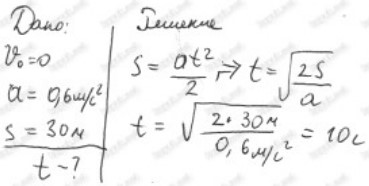 Дано:
V₀=0
a = 0,6 м/с²
S = 30 м
t - ?
Решение
S = at²/2 ⇒ t = √(2S/a)
t = √(2·30 м/0,6 м/с²) = 10 с